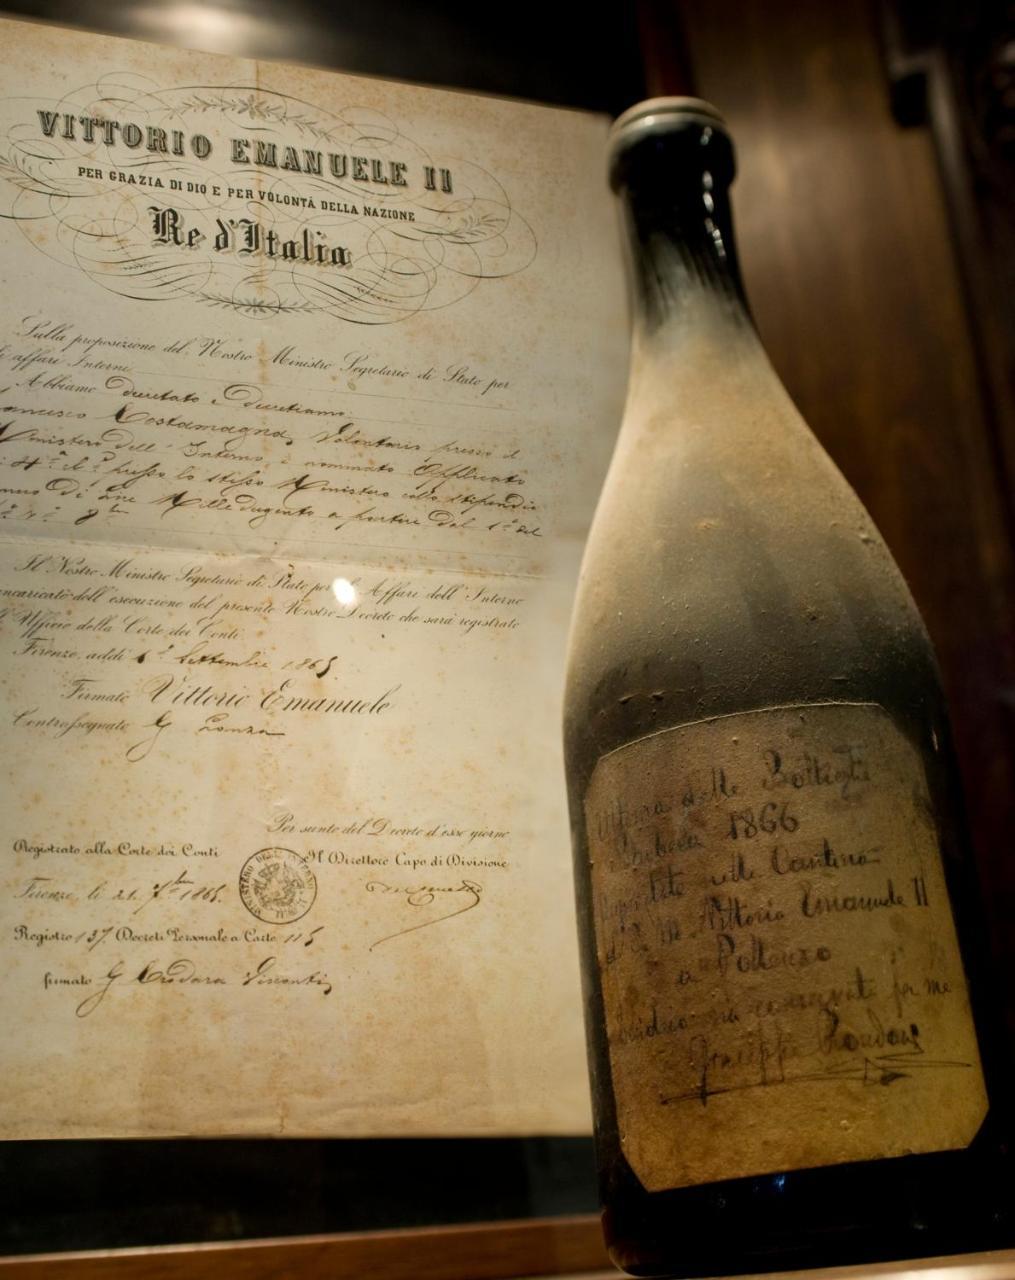 VITTORIO EMANUELE II
PER GRAZIA DI DIO E PER VOLONTÀ DELLA NAZIONE
Re d'Italia
Sulla proposizione del Nostro Ministro Segretario di Stato per
affari Interni
Abbiamo decretato e decretiamo:
Costamagna, Volontario presso il
Ministero dell' Interno, è nominato Applicato
di 4ª cl.e presso lo stesso Ministero collo stipendio
di Lire Mille dugento a partire dal 1º del
Il Nostro Ministro Segretario di Stato per gli Affari dell' Interno
incaricato dell'esecuzione del presente Nostro Decreto che sarà registrato
Uffizio della Corte dei Conti.
Firenze, addì 6 Settembre 1865
Firmato Vittorio Emanuele
Contrassegnato G Lanza
Per sunto del Decreto d'esso giorno
Registrato alla Corte dei Conti
Il Direttore Capo di Divisione
Firenze, li 21. 7bre 1865.
Registro 137 Decreti Personale a Carte 115
firmato G
Visconti
delle Bottiglie
Barbera 1866
nelle Cantine
di S. M. Vittorio Emanuele II
a Pollenzo
conservata per me
Giuseppe